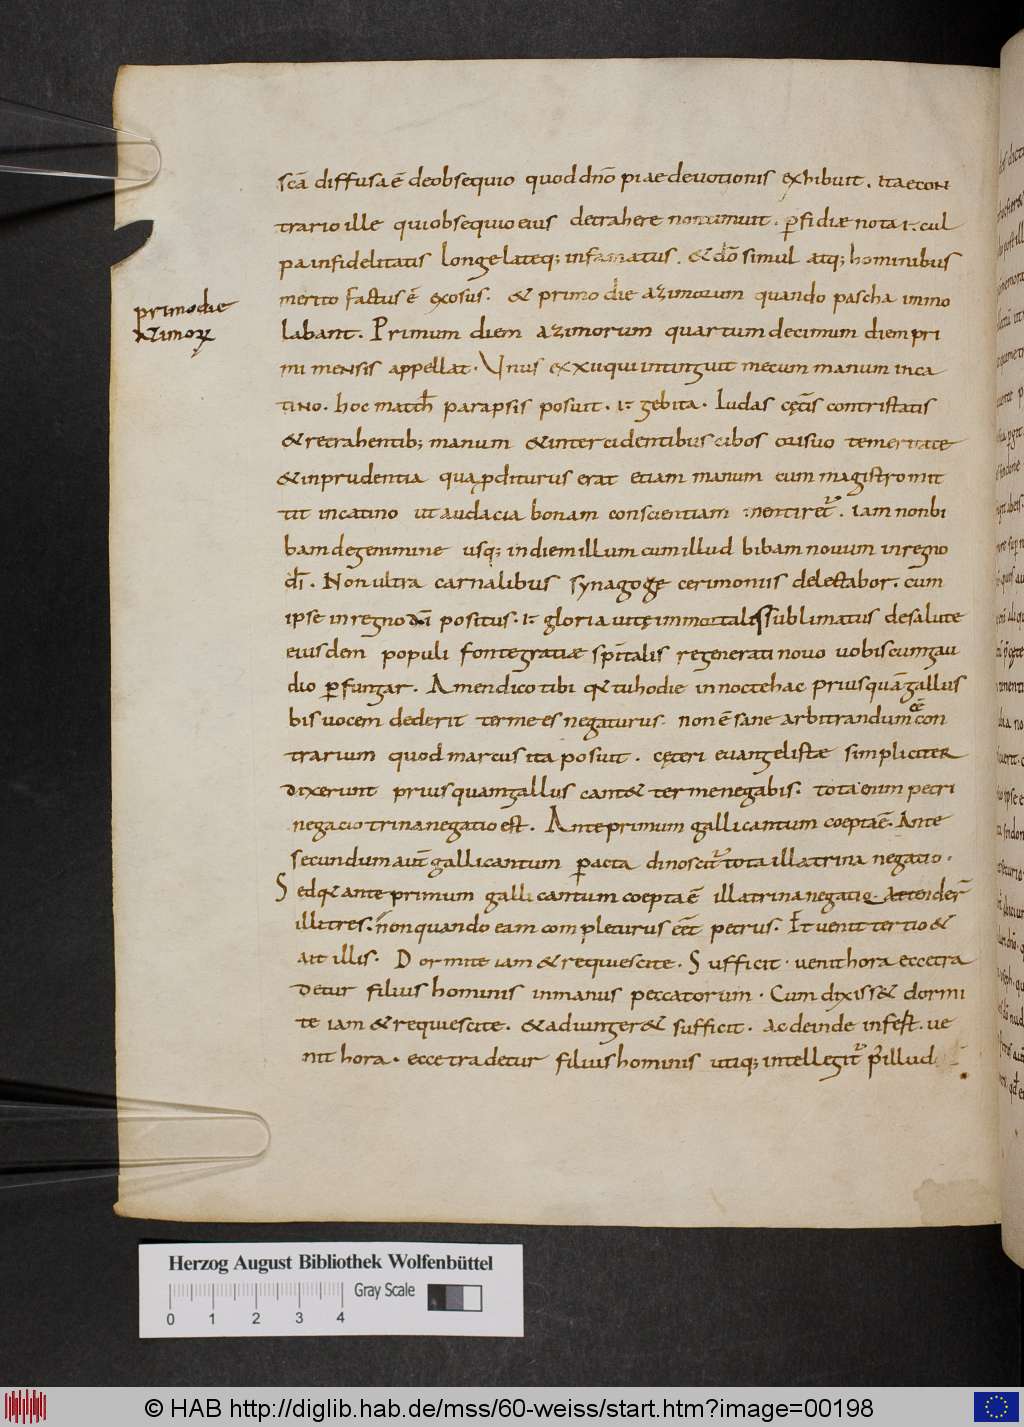 primo die
azimoꝝ
scā diffusa ē de obsequio quod dn̄o piae devotionis exhibuit. ita econ
trario ille qui obsequio eius detrahere non timuit. ꝑfidiæ nota ÷ cul
pa infidelitatis longe lateq; infamatus. & dō simul atq; hominibus
merito factus ē exosus. & primo die azimorum quando pascha immo
labant. Primum diem azimorum quartum decimum diem pri
mi mensis appellat. Unus ex xii qui intinguit mecum manum inca
tino. hoc math̄ parapsis posuit. Iudas cęt̄is contristatis
& retrahentib; manum & intercidentibus cibos temeritate
& inprudentia qua ꝓditurus erat etiam manum cum magistro mit
tit in catino ut audacia bonam conscientiam mentiret᷑. iam non bi
bam de genimine usq; in diem illum cum illud bibam novum in regno
dī. Non ultra carnalibus synagogę cerimoniis delectabor. cum
ipse in regno dī positus. gloria uitę immortalis sublimatus de salute
eiusdem populi fonte gratiæ spīitalis regenerati novo uobiscum gau
dio ꝑfungar. Amen dico tibi quia tu hodie in nocte hac priusquā gallus
bis uocem dederit ter me es negaturus. non ē sane arbitrandum eē con
trarium quod marcus ita posuit. cęteri euangelistæ simpliciter
dixerunt priusquam gallus cant& ter me negabis. tota enim petri
negacio trina negatio est. Ante primum galli cantum coepta ē. Ante
secundum aut̄ galli cantum ꝑacta dinoscit᷑ tota illa trina negatio.
Sed quia ante primum galli cantum coepta ē illa trina negatio. attender̄
illi tres. non quando eam completurus eēt petrus. Et uenit tertio &
ait illis. Dormite iam & requiescite. Sufficit. uenit hora ecce tra
detur filius hominis in manus peccatorum. Cum dixiss& dormi
te iam & requiescite. & adiunger& sufficit. ac deinde infest. ue
nit hora. ecce tradetur filius hominis utiq; intellegit᷑ p̄ illud
Herzog August Bibliothek Wolfenbüttel
Gray Scale
0 1 2 3 4
© HAB http://diglib.hab.de/mss/60-weiss/start.htm?image=00198